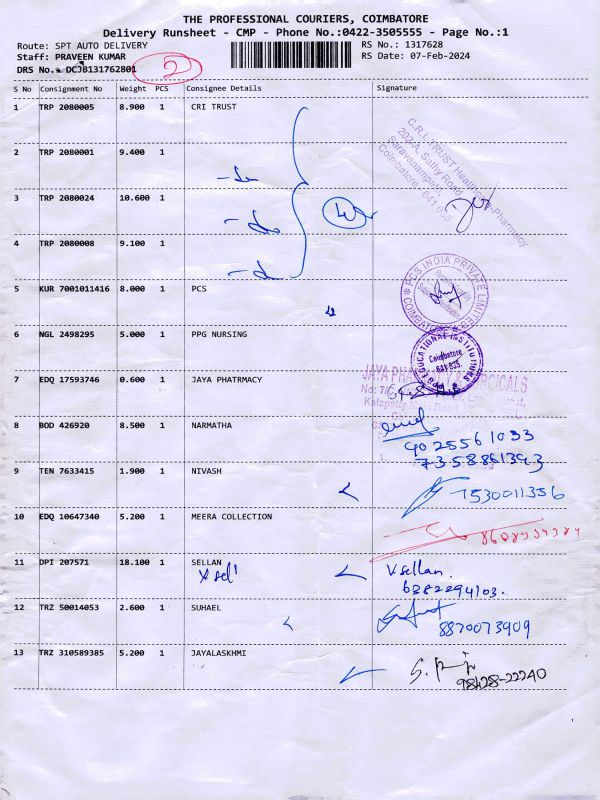 THE PROFESSIONAL COURIERS, COIMBATORE
Delivery Runsheet - CMP - Phone No.:0422-3505555 - Page No.:1
Route: SPT AUTO DELIVERY RS No.: 1317628
Staff: PRAVEEN KUMAR RS Date: 07-Feb-2024
DRS No.: DCJB131762801 2
S No Consignment No Weight PCS Consignee Details Signature
1 TRP 2080005 8.900 1 CRI TRUST
C.R.I. TRUST Healthcare-Pharmacy
202-A, Sathy Road,
Saravanampatti,
Coimbatore - 641 035
2 TRP 2080001 9.400 1
3 TRP 2080024 10.600 1
4 TRP 2080008 9.100 1
5 KUR 7001011416 8.000 1 PCS
PCS INDIA PRIVATE LIMITED
6 NGL 2498295 5.000 1 PPG NURSING
PPG EDUCATIONAL INSTITUTIONS
Coimbatore
641 035.
7 EDQ 17593746 0.600 1 JAYA PHATRMACY
JAYA PHARMACY
8 BOD 426920 8.500 1 NARMATHA
9025561033
7358861393
9 TEN 7633415 1.900 1 NIVASH 7530011356
10 EDQ 10647340 5.200 1 MEERA COLLECTION
11 DPI 207571 18.100 1 SELLAN V.sellan.
6382294103.
12 TRZ 50014053 2.600 1 SUHAEL
8870073909
13 TRZ 310589385 5.200 1 JAYALASKHMI
98428-22240